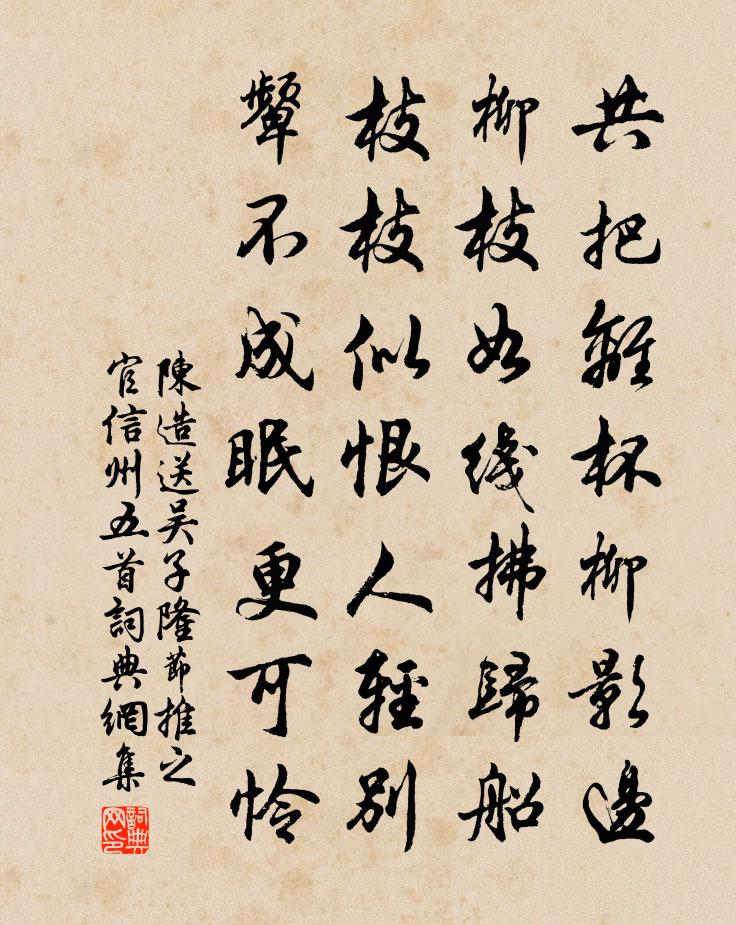 共把離杯柳影邊
柳枝如綫拂歸船
枝枝似恨人輕別
顰不成眠更可怜
陳造送吴子隆節推之
官信州五首詞典網集
詞典
网印